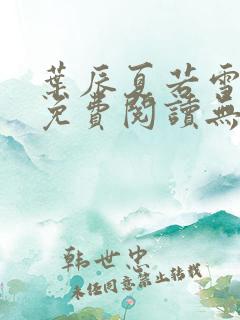 葉辰夏若雪
免費閱讀無
韩世忠
未经同意禁止转载